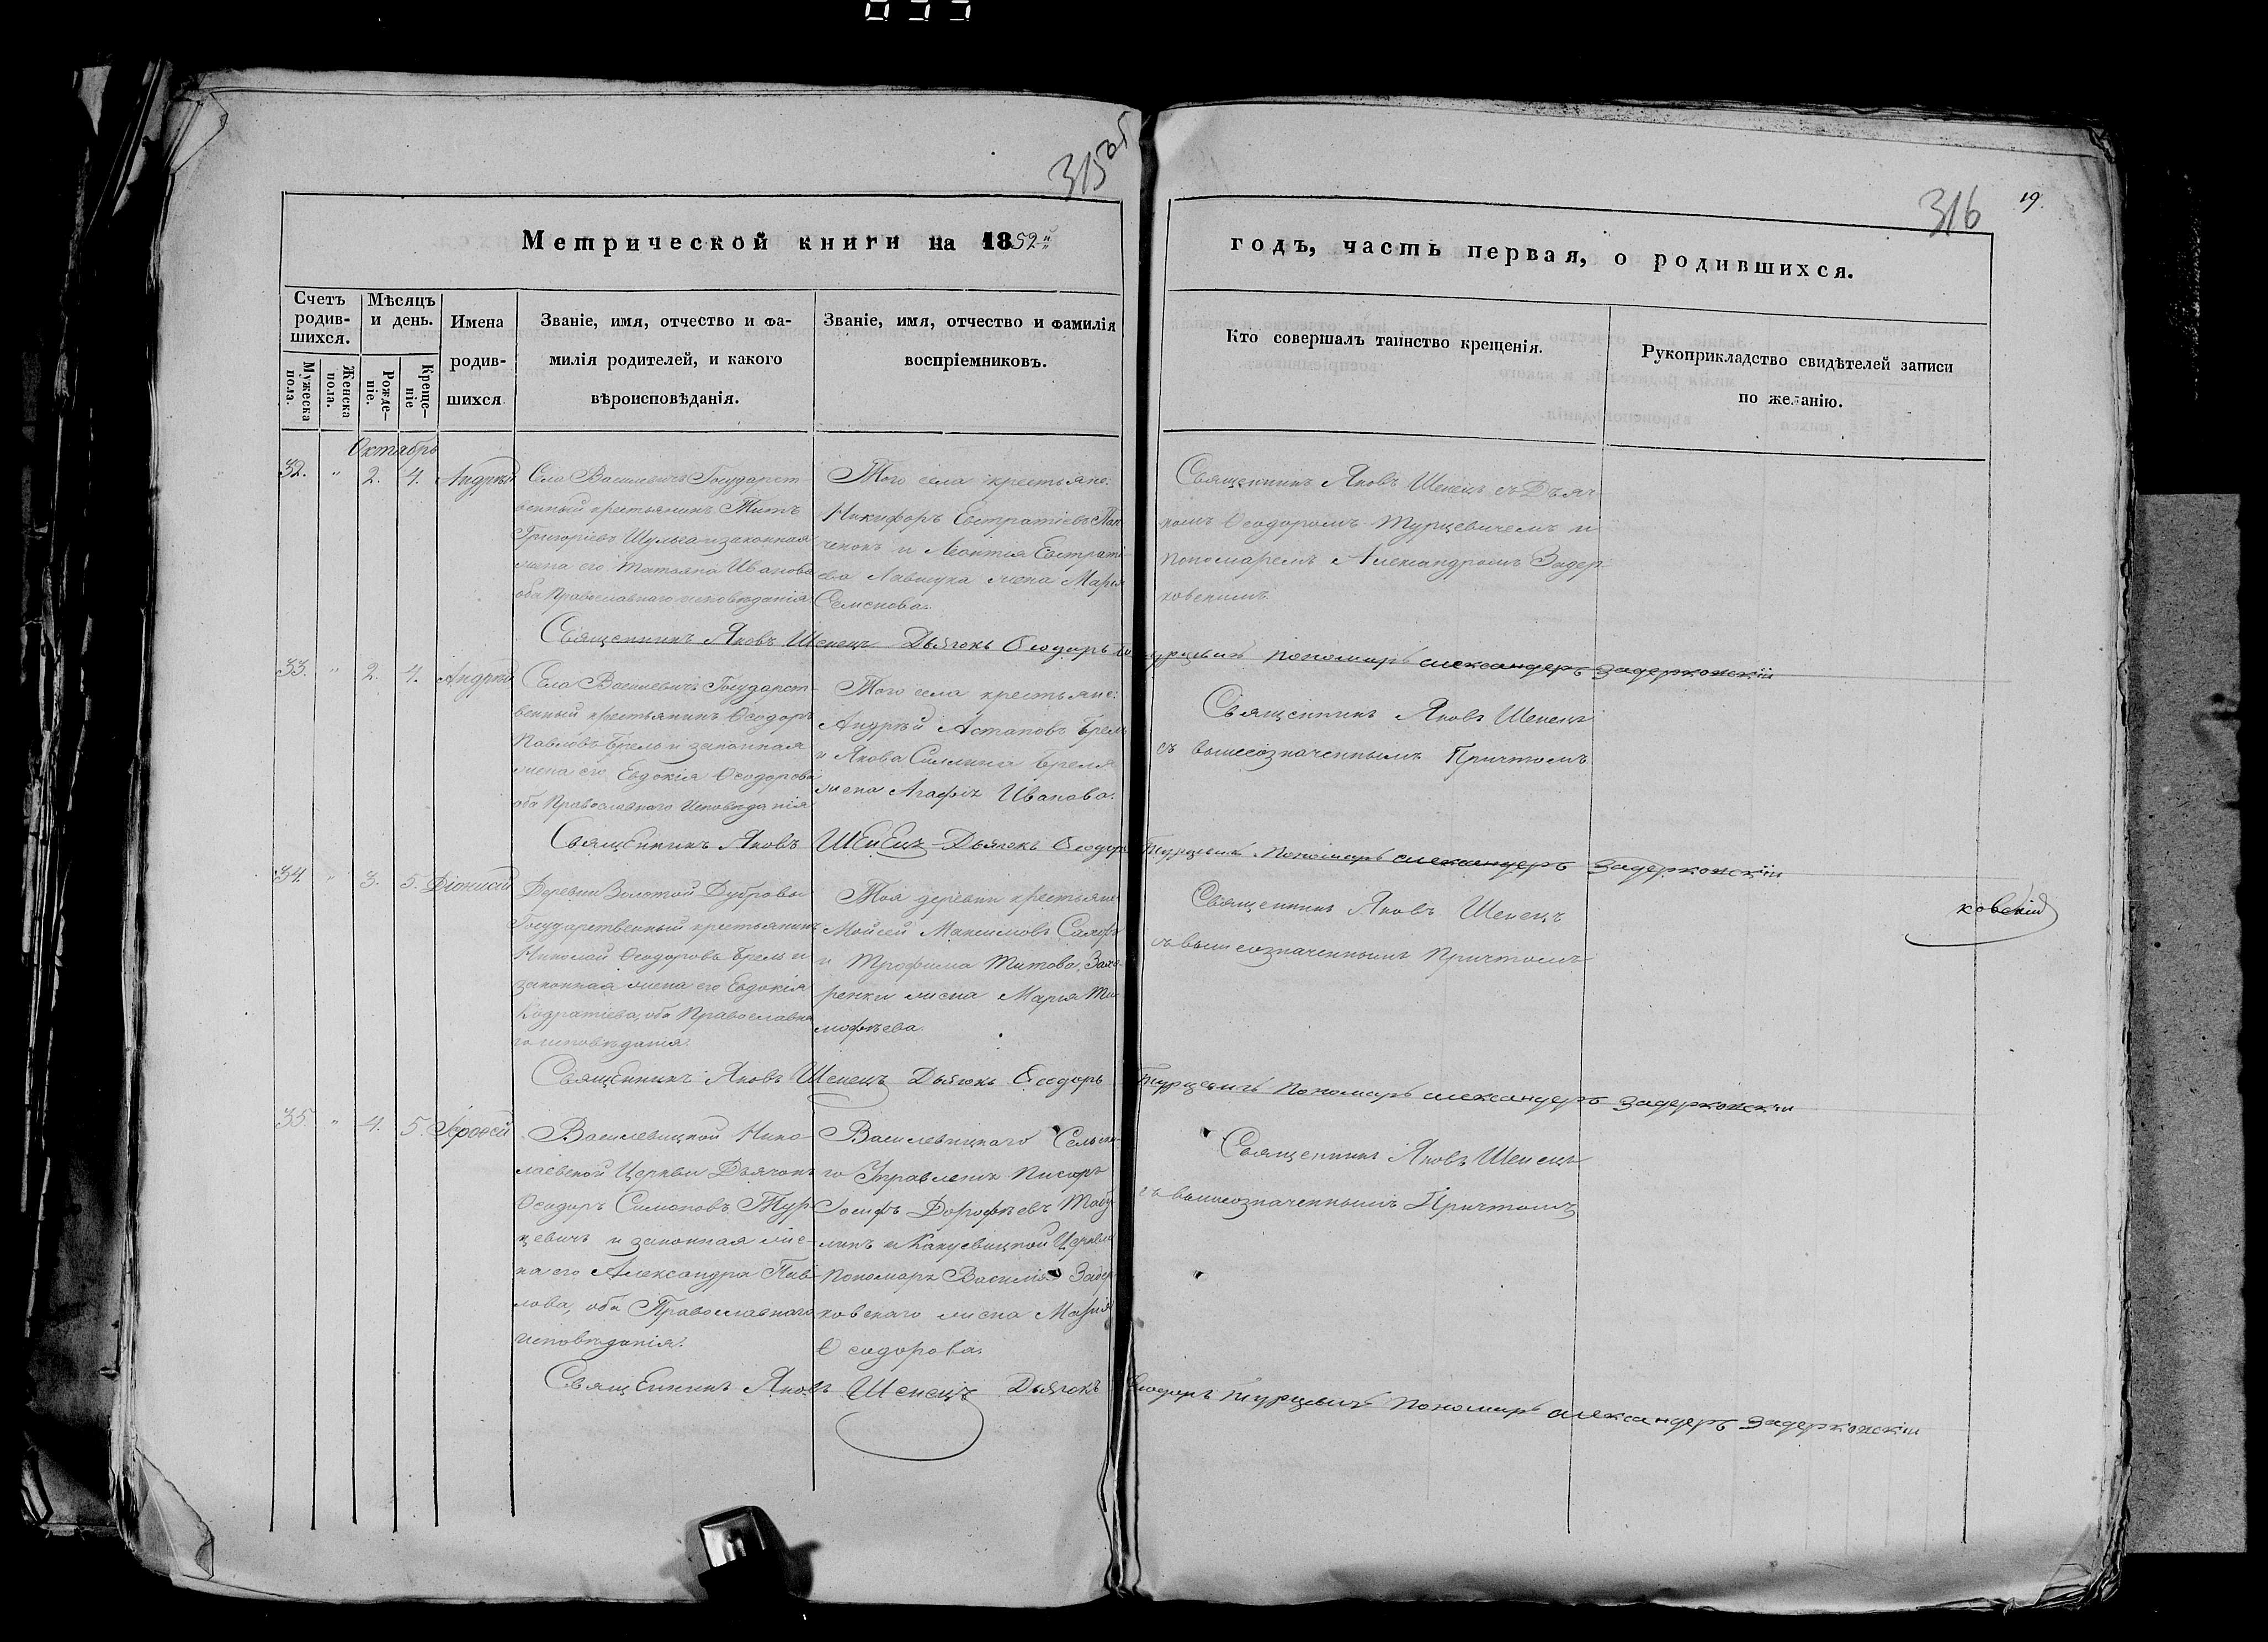 315 об
316
19.
Метрической книги на 1852й
годъ, часть первая, о родившихся.
Счетъ родив-шихся.
Мужеска пола.
Женска пола.
Мѣсяцъ и день.
Рожде-ніе.
Креще-ніе
Имена родив-шихся
Званіе, имя, отчество и фа-
милія родителей, и какого
вѣроисповѣданія.
Званіе, имя, отчество и фамилія
воспріемниковъ.
Кто совершалъ таинство крещенія.
Рукоприкладство свидѣтелей записи
по желанію.
Октябрь
32. " 2. 4. Андрей
Села Василевичъ Государст-
венный крестьянинъ Титъ
Григорьевъ Шульга и законная
жена его Татьяна Иванова
оба Православнаго исповѣданія
Того села крестьяне:
Никифоръ Евстратіевъ Пан
ченокъ и Леонтія Евстраті
ева жена Марія
Семенова.
Священникъ Яковъ Шенецъ съ Дьяч
комъ Ѳеодоромъ Турцевичемъ и
пономаремъ Александромъ Задер
ковскимъ.
Священникъ Яковъ Шенецъ Дьячокъ Ѳеодоръ Турцевичъ Пономаръ Александеръ Задерковскій
33. " 2. 4. Андрей
Села Василевичъ Государст-
венный крестьянинъ Ѳеодоръ
Павловъ Брель и законная
жена его Евдокія Ѳеодорова
оба Православнаго Исповѣданія
Того села крестьяне:
Андрей Астаповъ Брель
и Якова Брел
жена Агафія Иванова.
Священникъ Яковъ Шенецъ
съ вышеозначеннымъ Причтомъ
Священникъ Яковъ Шенецъ Дьячокъ Ѳеодоръ Турцевичъ Пономаръ Александеръ Задерковскій
34. " 3. 5. Діонисій
Деревни Золотой Дубровы
Государственный крестьянинъ
Николай Ѳеодоровъ Брель и
законная жена его Евдокія
Кодратіева, оба Православна
го исповѣданія.
Тоя деревни крестьяне
Моисей Максимовъ
и Трофима Титова Заха
ренки жена Марія Ти
мофѣева.
Священникъ Яковъ Шенецъ
съ вышеозначеннымъ Причтомъ
ковскій
Священникъ Яковъ Шенецъ Дьячокъ Ѳеодоръ Турцевичъ Пономаръ Александеръ Задерковскій
35. " 4. 5. Іероѳей
Василевицкой Нико-
лаевской Церкви Дьячокъ
Ѳеодоръ Симоновъ Тур-
цевичъ и законная же-
на его Александра Пав-
лова, оба Православнаго
исповѣданія.
Василевицкаго Сельска
го Управленія Писарь
Іосифъ Дорофѣевъ
и Церкви
Пономаря Василія Задер
ковскаго жена Марія
Ѳеодорова.
Священникъ Яковъ Шенецъ
съ вышеозначеннымъ Причтомъ
Священникъ Яковъ Шенецъ Дьячокъ Ѳеодоръ Турцевичъ Пономаръ Александеръ Задерковскій